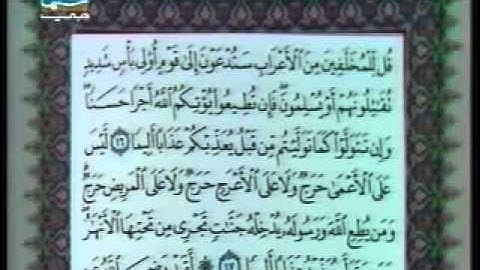 قُل لِّلْمُخَلَّفِينَ مِنَ ٱلْأَعْرَابِ سَتُدْعَوْنَ إِلَىٰ قَوْمٍ أُو۟لِى بَأْسٍ شَدِيدٍ
تُقَٰتِلُونَهُمْ أَوْ يُسْلِمُونَ ۖ فَإِن تُطِيعُوا۟ يُؤْتِكُمُ ٱللَّهُ أَجْرًا حَسَنًا ۖ
وَإِن تَتَوَلَّوْا۟ كَمَا تَوَلَّيْتُم مِّن قَبْلُ يُعَذِّبْكُمْ عَذَابًا أَلِيمًا ١٦ لَّيْسَ
عَلَى ٱلْأَعْمَىٰ حَرَجٌ وَلَا عَلَى ٱلْأَعْرَجِ حَرَجٌ وَلَا عَلَى ٱلْمَرِيضِ حَرَجٌ ۗ
وَمَن يُطِعِ ٱللَّهَ وَرَسُولَهُۥ يُدْخِلْهُ جَنَّٰتٍ تَجْرِى مِن تَحْتِهَا ٱلْأَنْهَٰرُ ۖ
عَذَابًا أَلِيمًا ١٧ ۞ لَّقَدْ رَضِىَ ٱللَّهُ